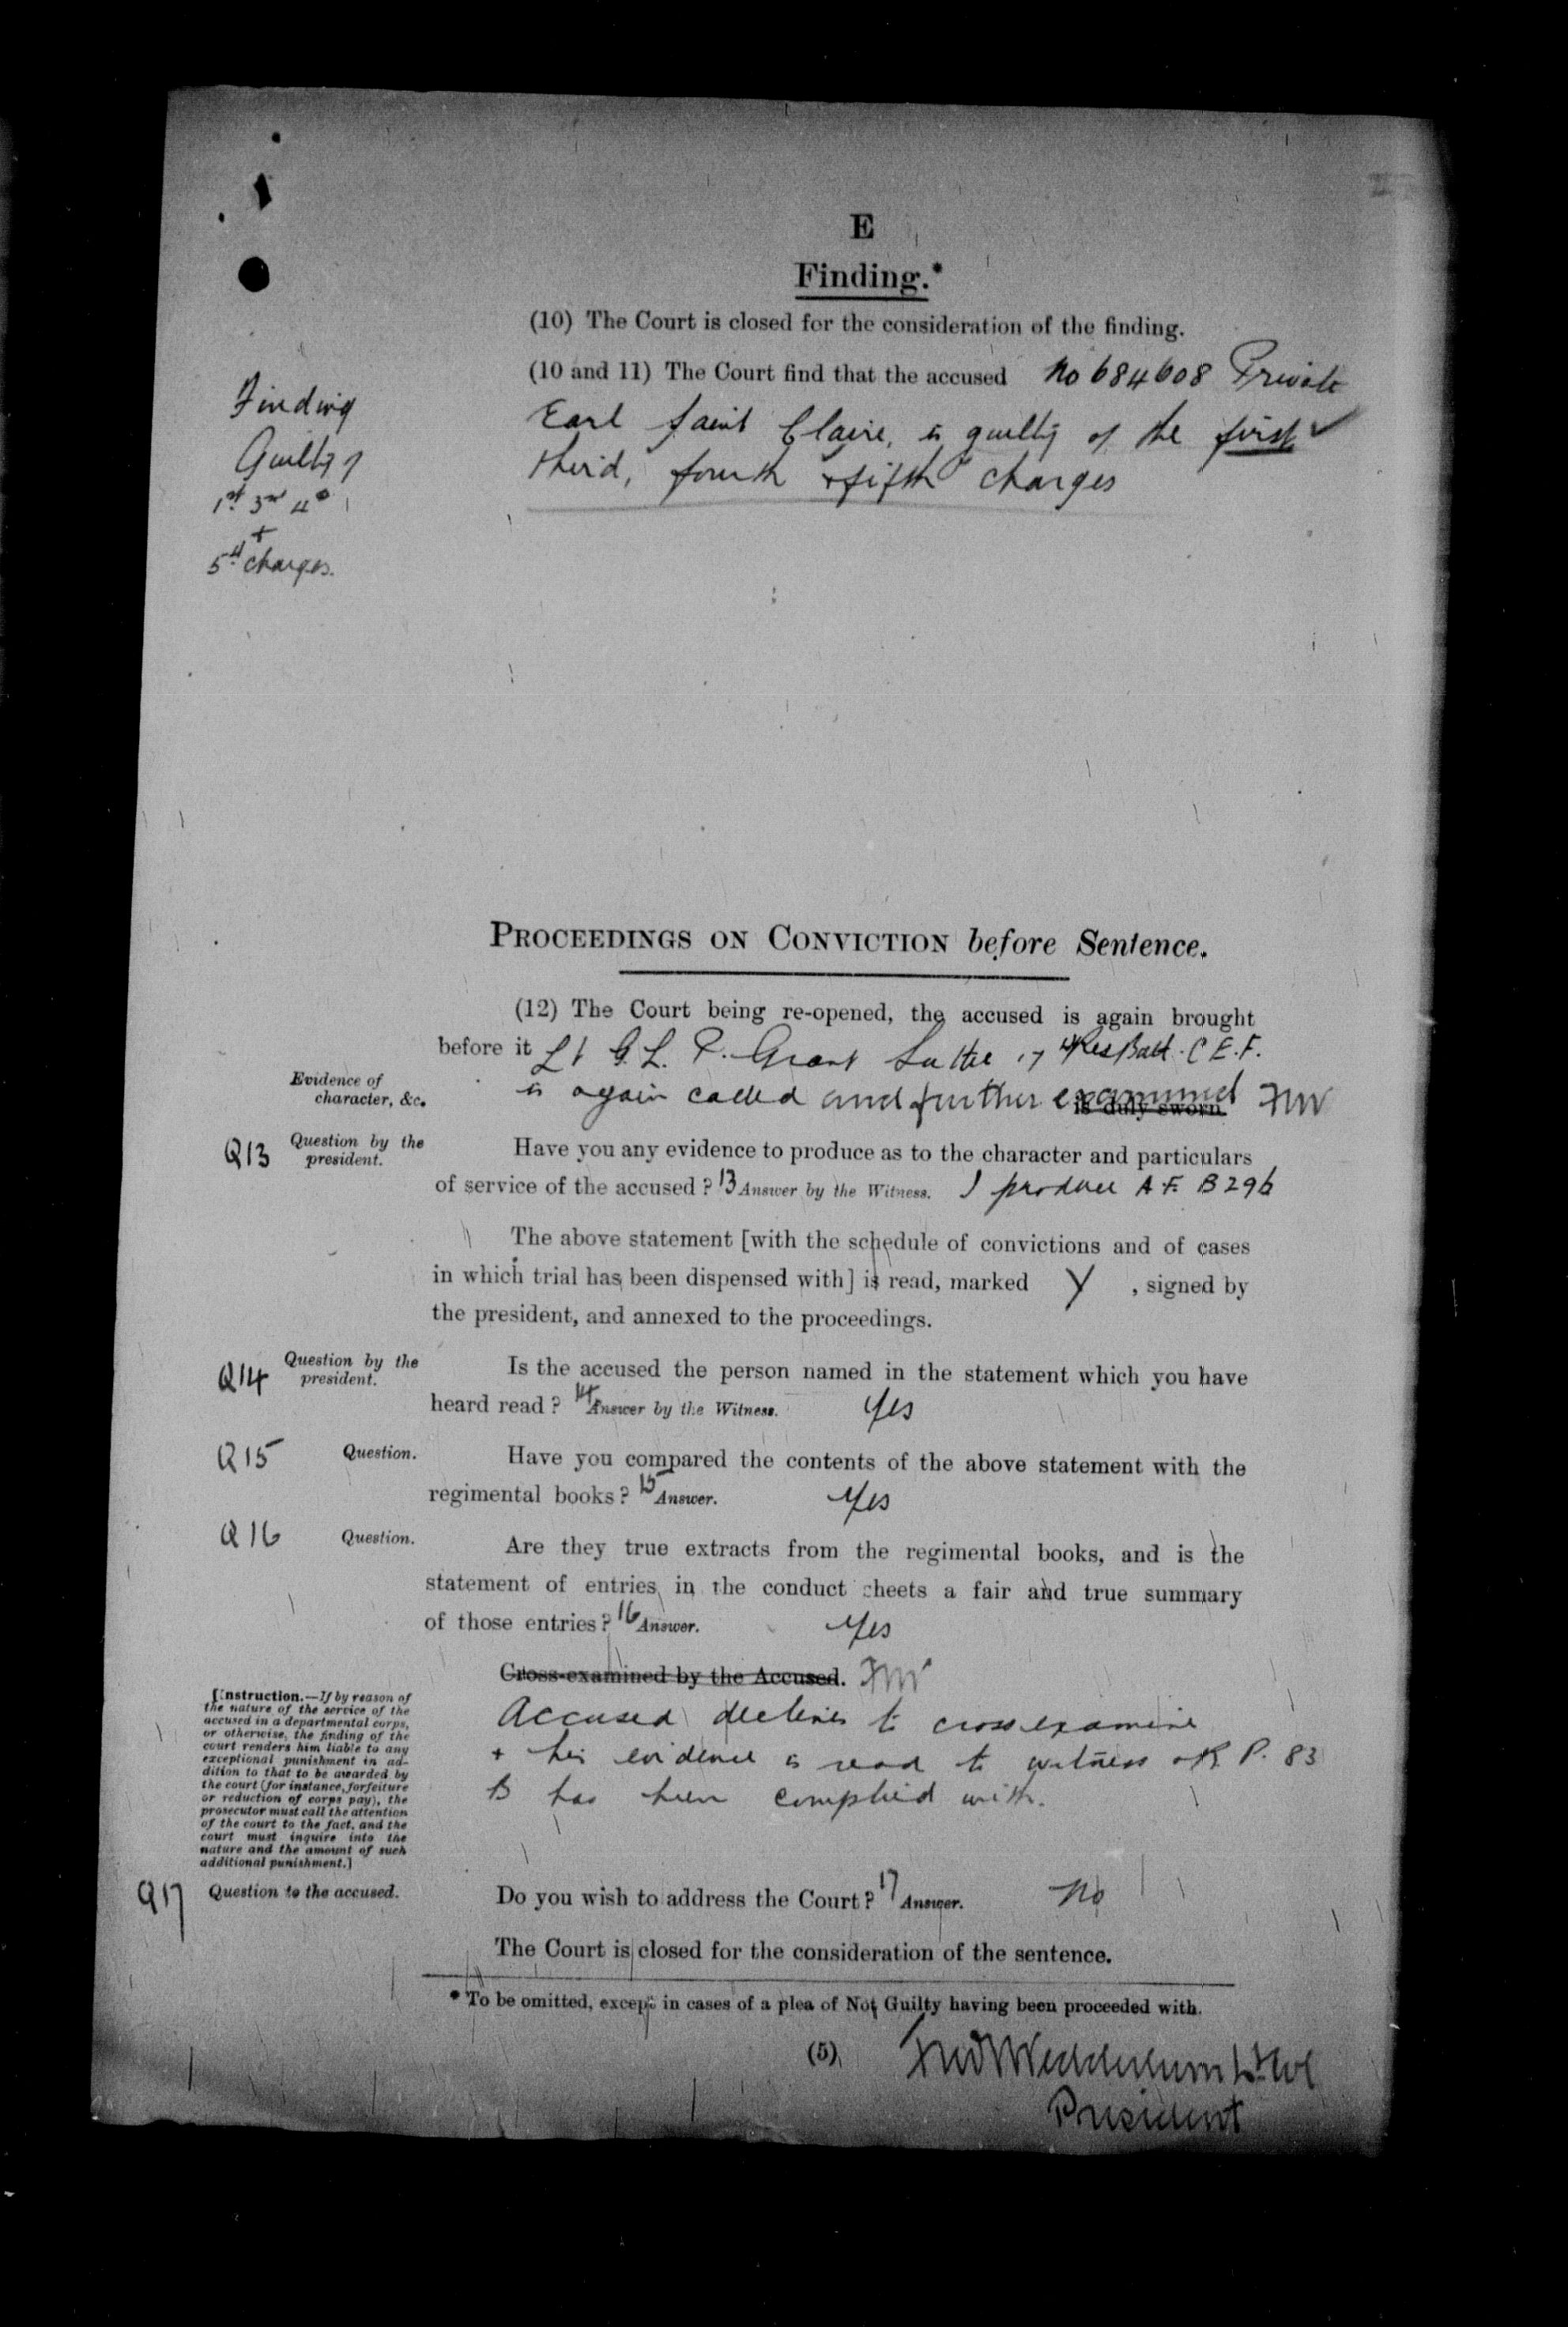 E
Finding.*
(10) The Court is closed for the consideration of the finding.
(10 and 11) The Court find that the accused No 684608 Private
Earl Saint Claire, is guilty of the first
third, fourth + fifth charges
Finding
Guilty of
1st 3rd 4th
+
5th charges.
PROCEEDINGS ON CONVICTION before Sentence.
(12) The Court being re-opened, the accused is again brought
before it Lt G. L. P. Grant Suttie 17 Res Batt. C E.F.
Evidence of
character, &c.
is again called and further examined is duly sworn. FW
Q13 Question by the
president.
Have you any evidence to produce as to the character and particulars
of service of the accused? 13 Answer by the Witness. I produce A.F. B 296
The above statement [with the schedule of convictions and of cases
in which trial has been dispensed with] is read, marked Y , signed by
the president, and annexed to the proceedings.
Q14 Question by the
president.
Is the accused the person named in the statement which you have
heard read? 14 Answer by the Witness. Yes
Q15 Question.
Have you compared the contents of the above statement with the
regimental books? 15 Answer. Yes
Q16 Question.
Are they true extracts from the regimental books, and is the
statement of entries in the conduct sheets a fair and true summary
of those entries? 16 Answer. Yes
Cross-examined by the Accused. FW
Accused declines to cross examine
+ his evidence is read to witness + R. P. 83
B has been complied with.
[Instruction.—If by reason of
the nature of the service of the
accused in a departmental corps,
or otherwise, the finding of the
court renders him liable to any
exceptional punishment in ad-
dition to that to be awarded by
the court (for instance, forfeiture
or reduction of corps pay), the
prosecutor must call the attention
of the court to the fact, and the
court must inquire into the
nature and the amount of such
additional punishment.]
Q17 Question to the accused.
Do you wish to address the Court? 17 Answer. No
The Court is closed for the consideration of the sentence.
* To be omitted, except in cases of a plea of Not Guilty having been proceeded with.
(5)
FW Wedderburn Lt Col
President